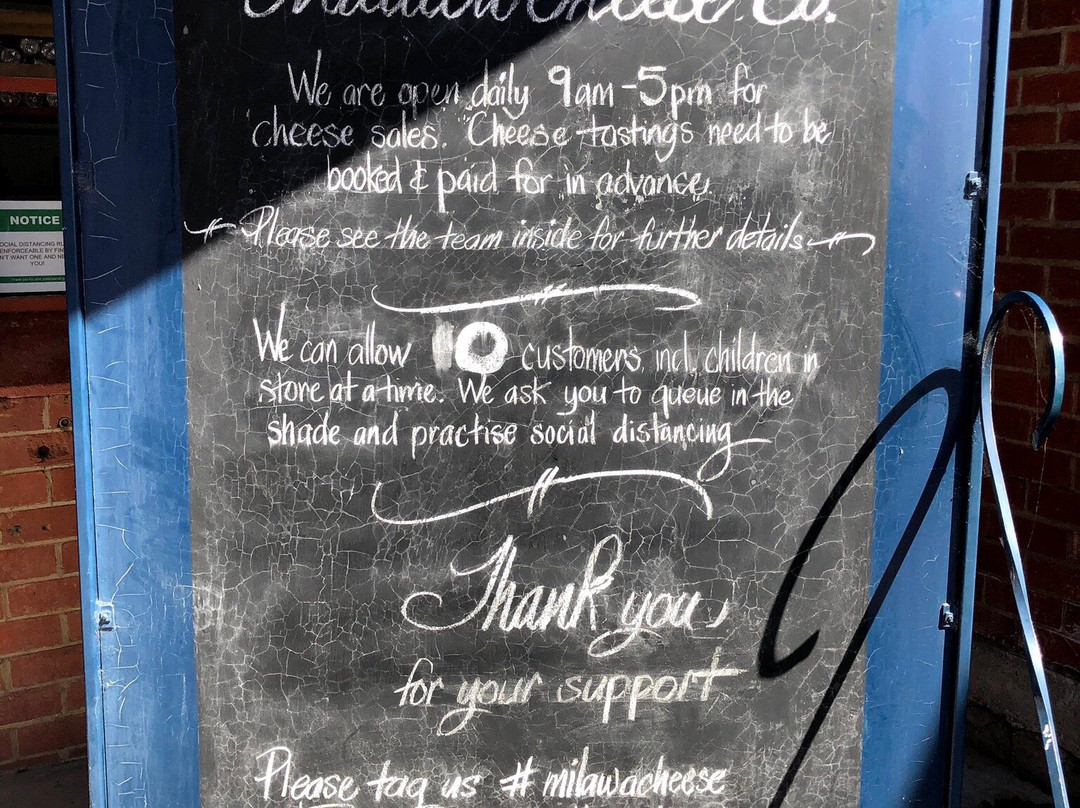 Milawa Cheese Co.
We are open daily 9am-5pm for
cheese sales. Cheese tastings need to be
booked & paid for in advance.
Please see the team inside for further details
We can allow 10 customers incl. children in
store at a time. We ask you to queue in the
shade and practise social distancing
Thank you
for your support
Please tag us #milawacheese
NOTICE
ENFORCEABLE BY
WANT ONE AND
YOU!